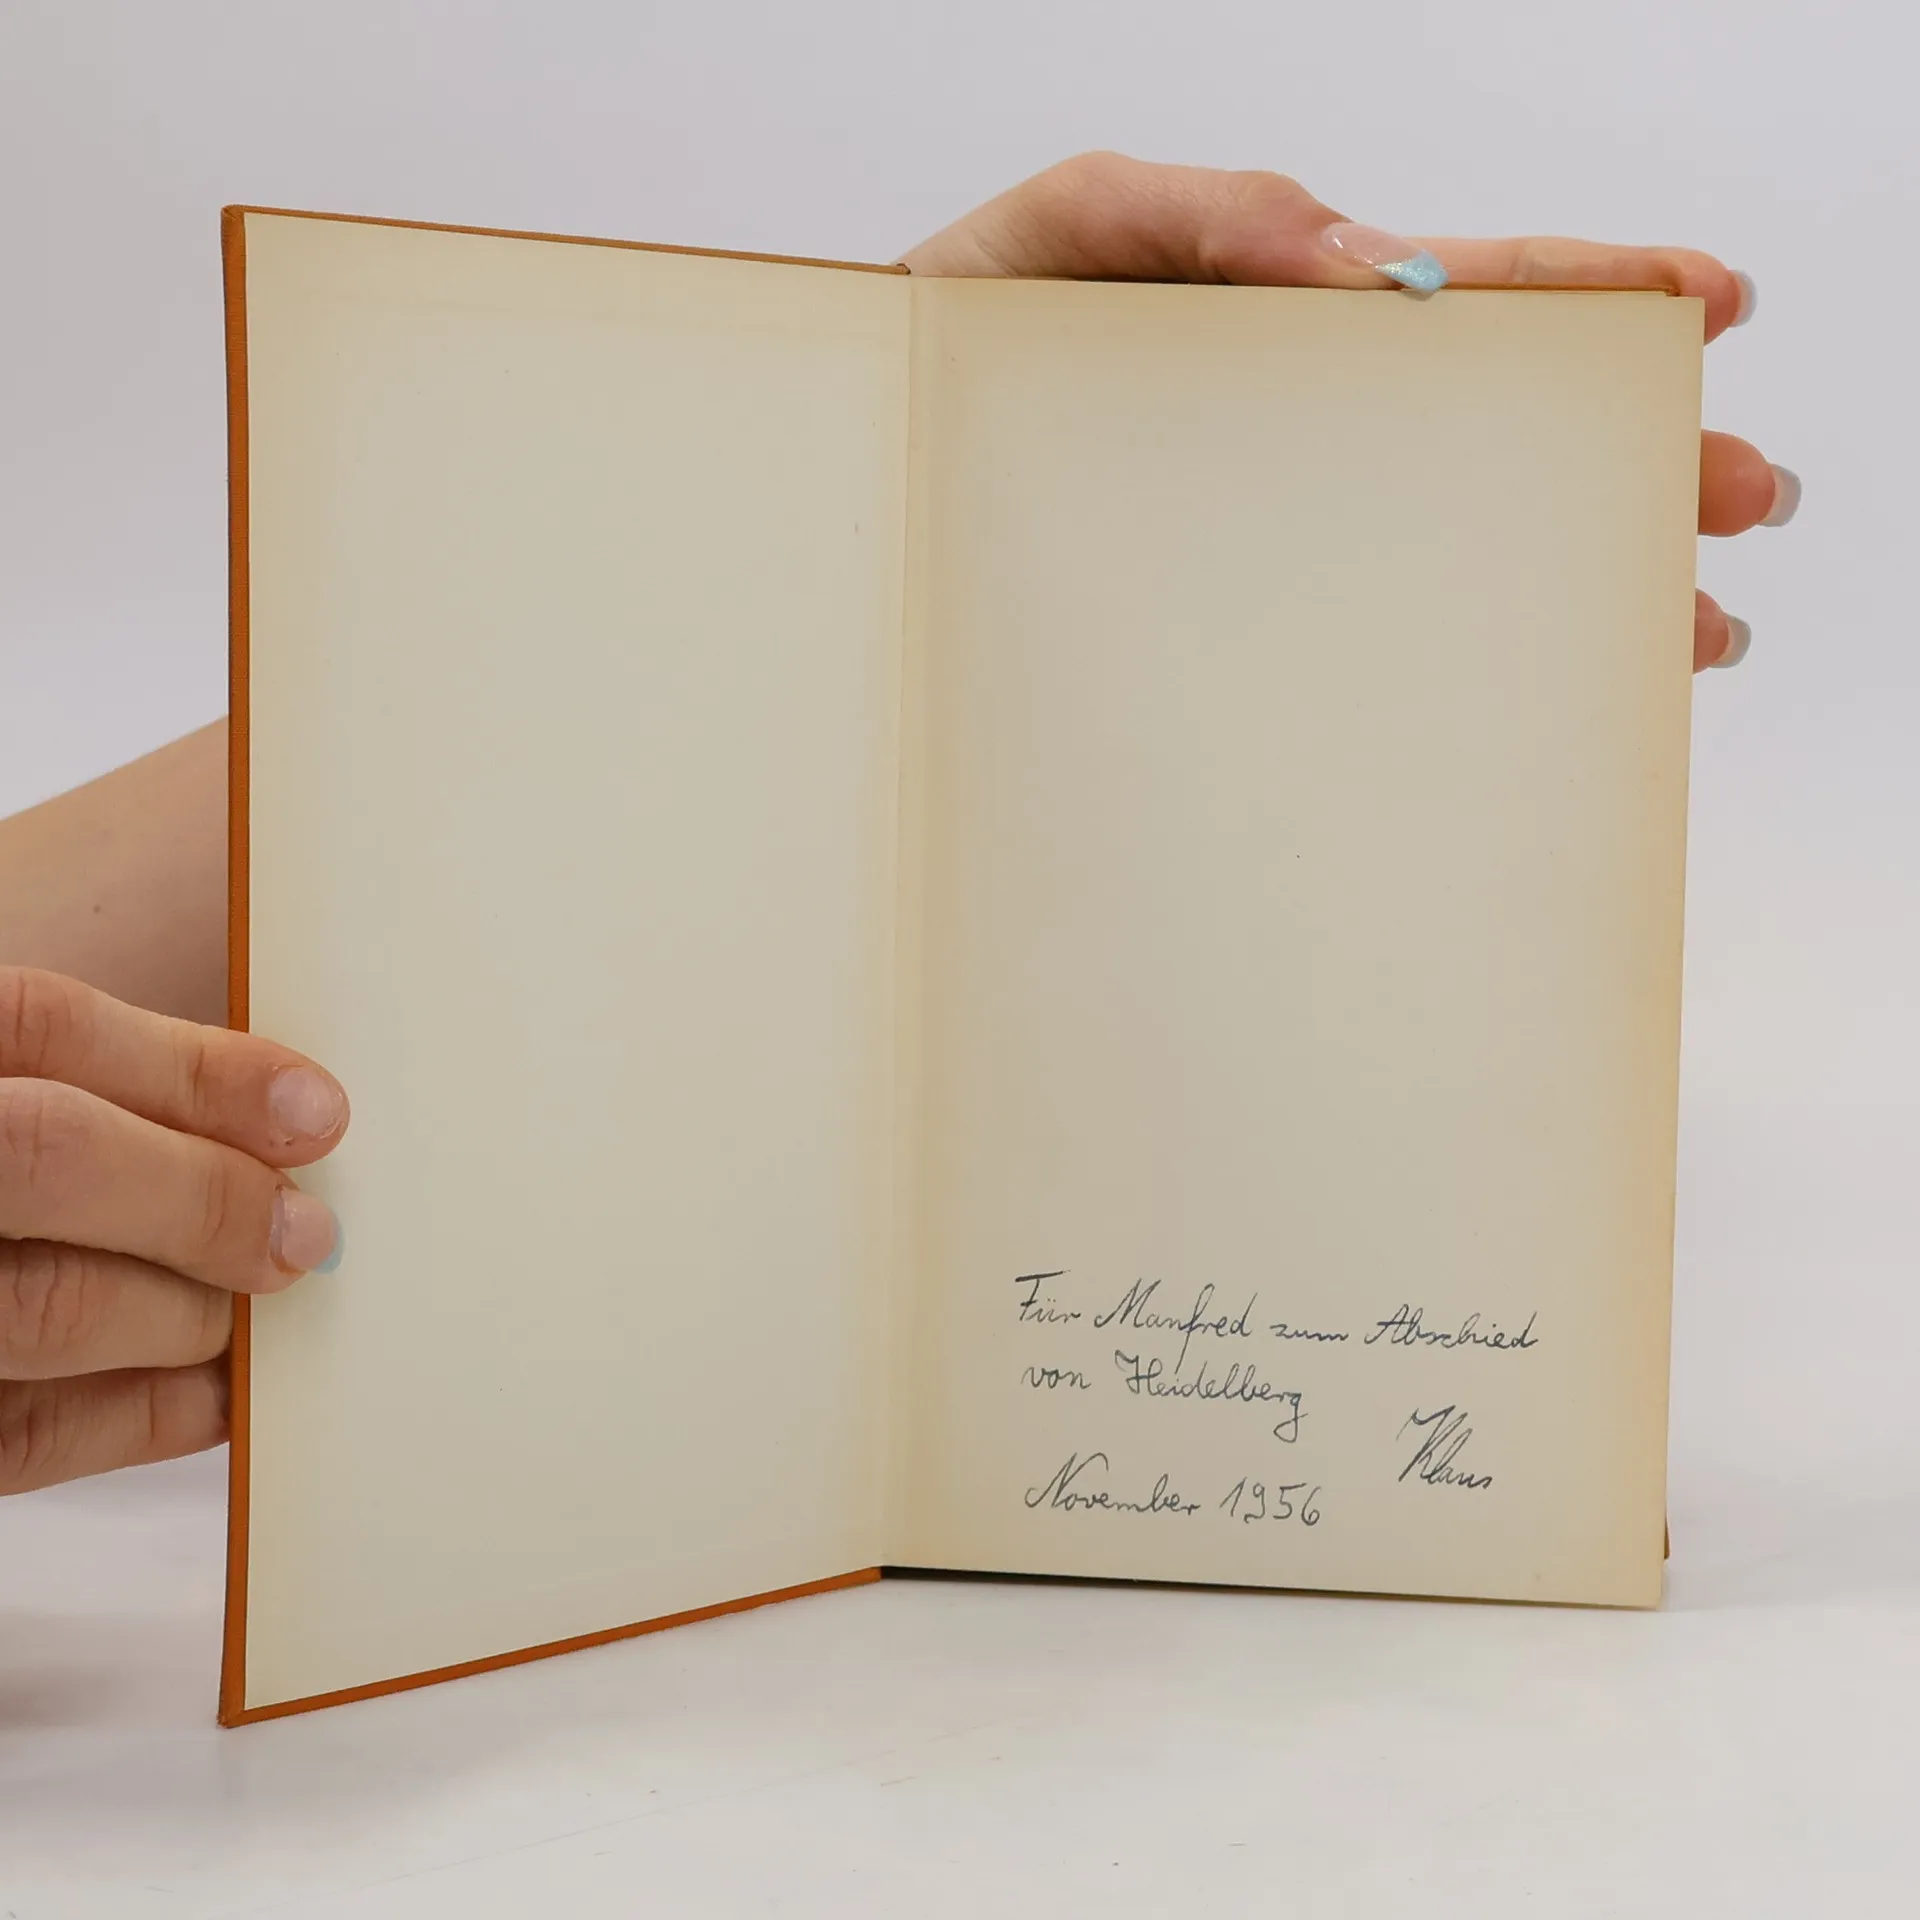 Für Manfred zum Abschied
von Heidelberg
Klaus
November 1956